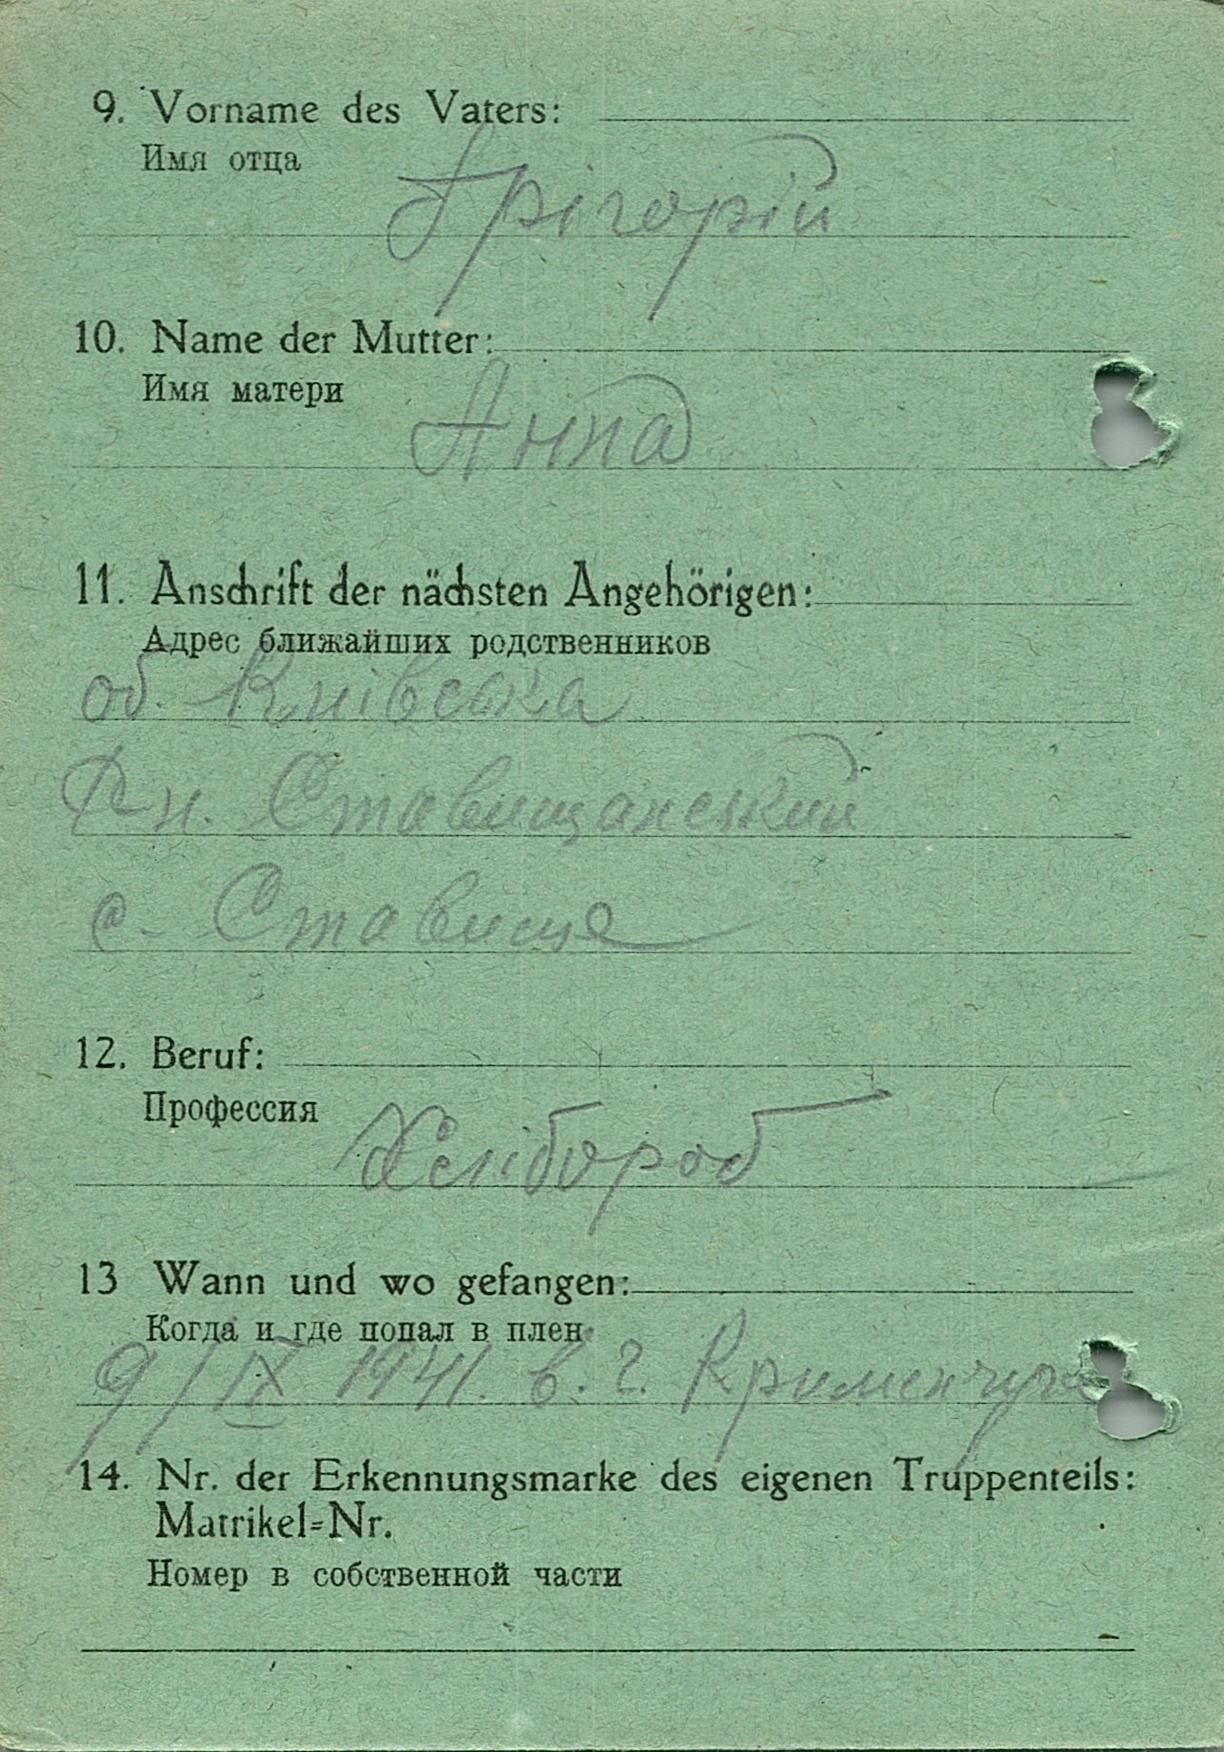 9. Vorname des Vaters:
Имя отца
Грігорій
10. Name der Mutter:
Имя матери
Анна
11. Anschrift der nächsten Angehörigen:
Адрес ближайших родственников
об. Киівська
Рн. Ставищанский
с. Ставище
12. Beruf:
Профессия
Хлібороб
13 Wann und wo gefangen:
Когда и где попал в плен
9/IX 1941. в. г. Кримечуг
14. Nr. der Erkennungsmarke des eigenen Truppenteils:
Matrikel=Nr.
Номер в собственной части